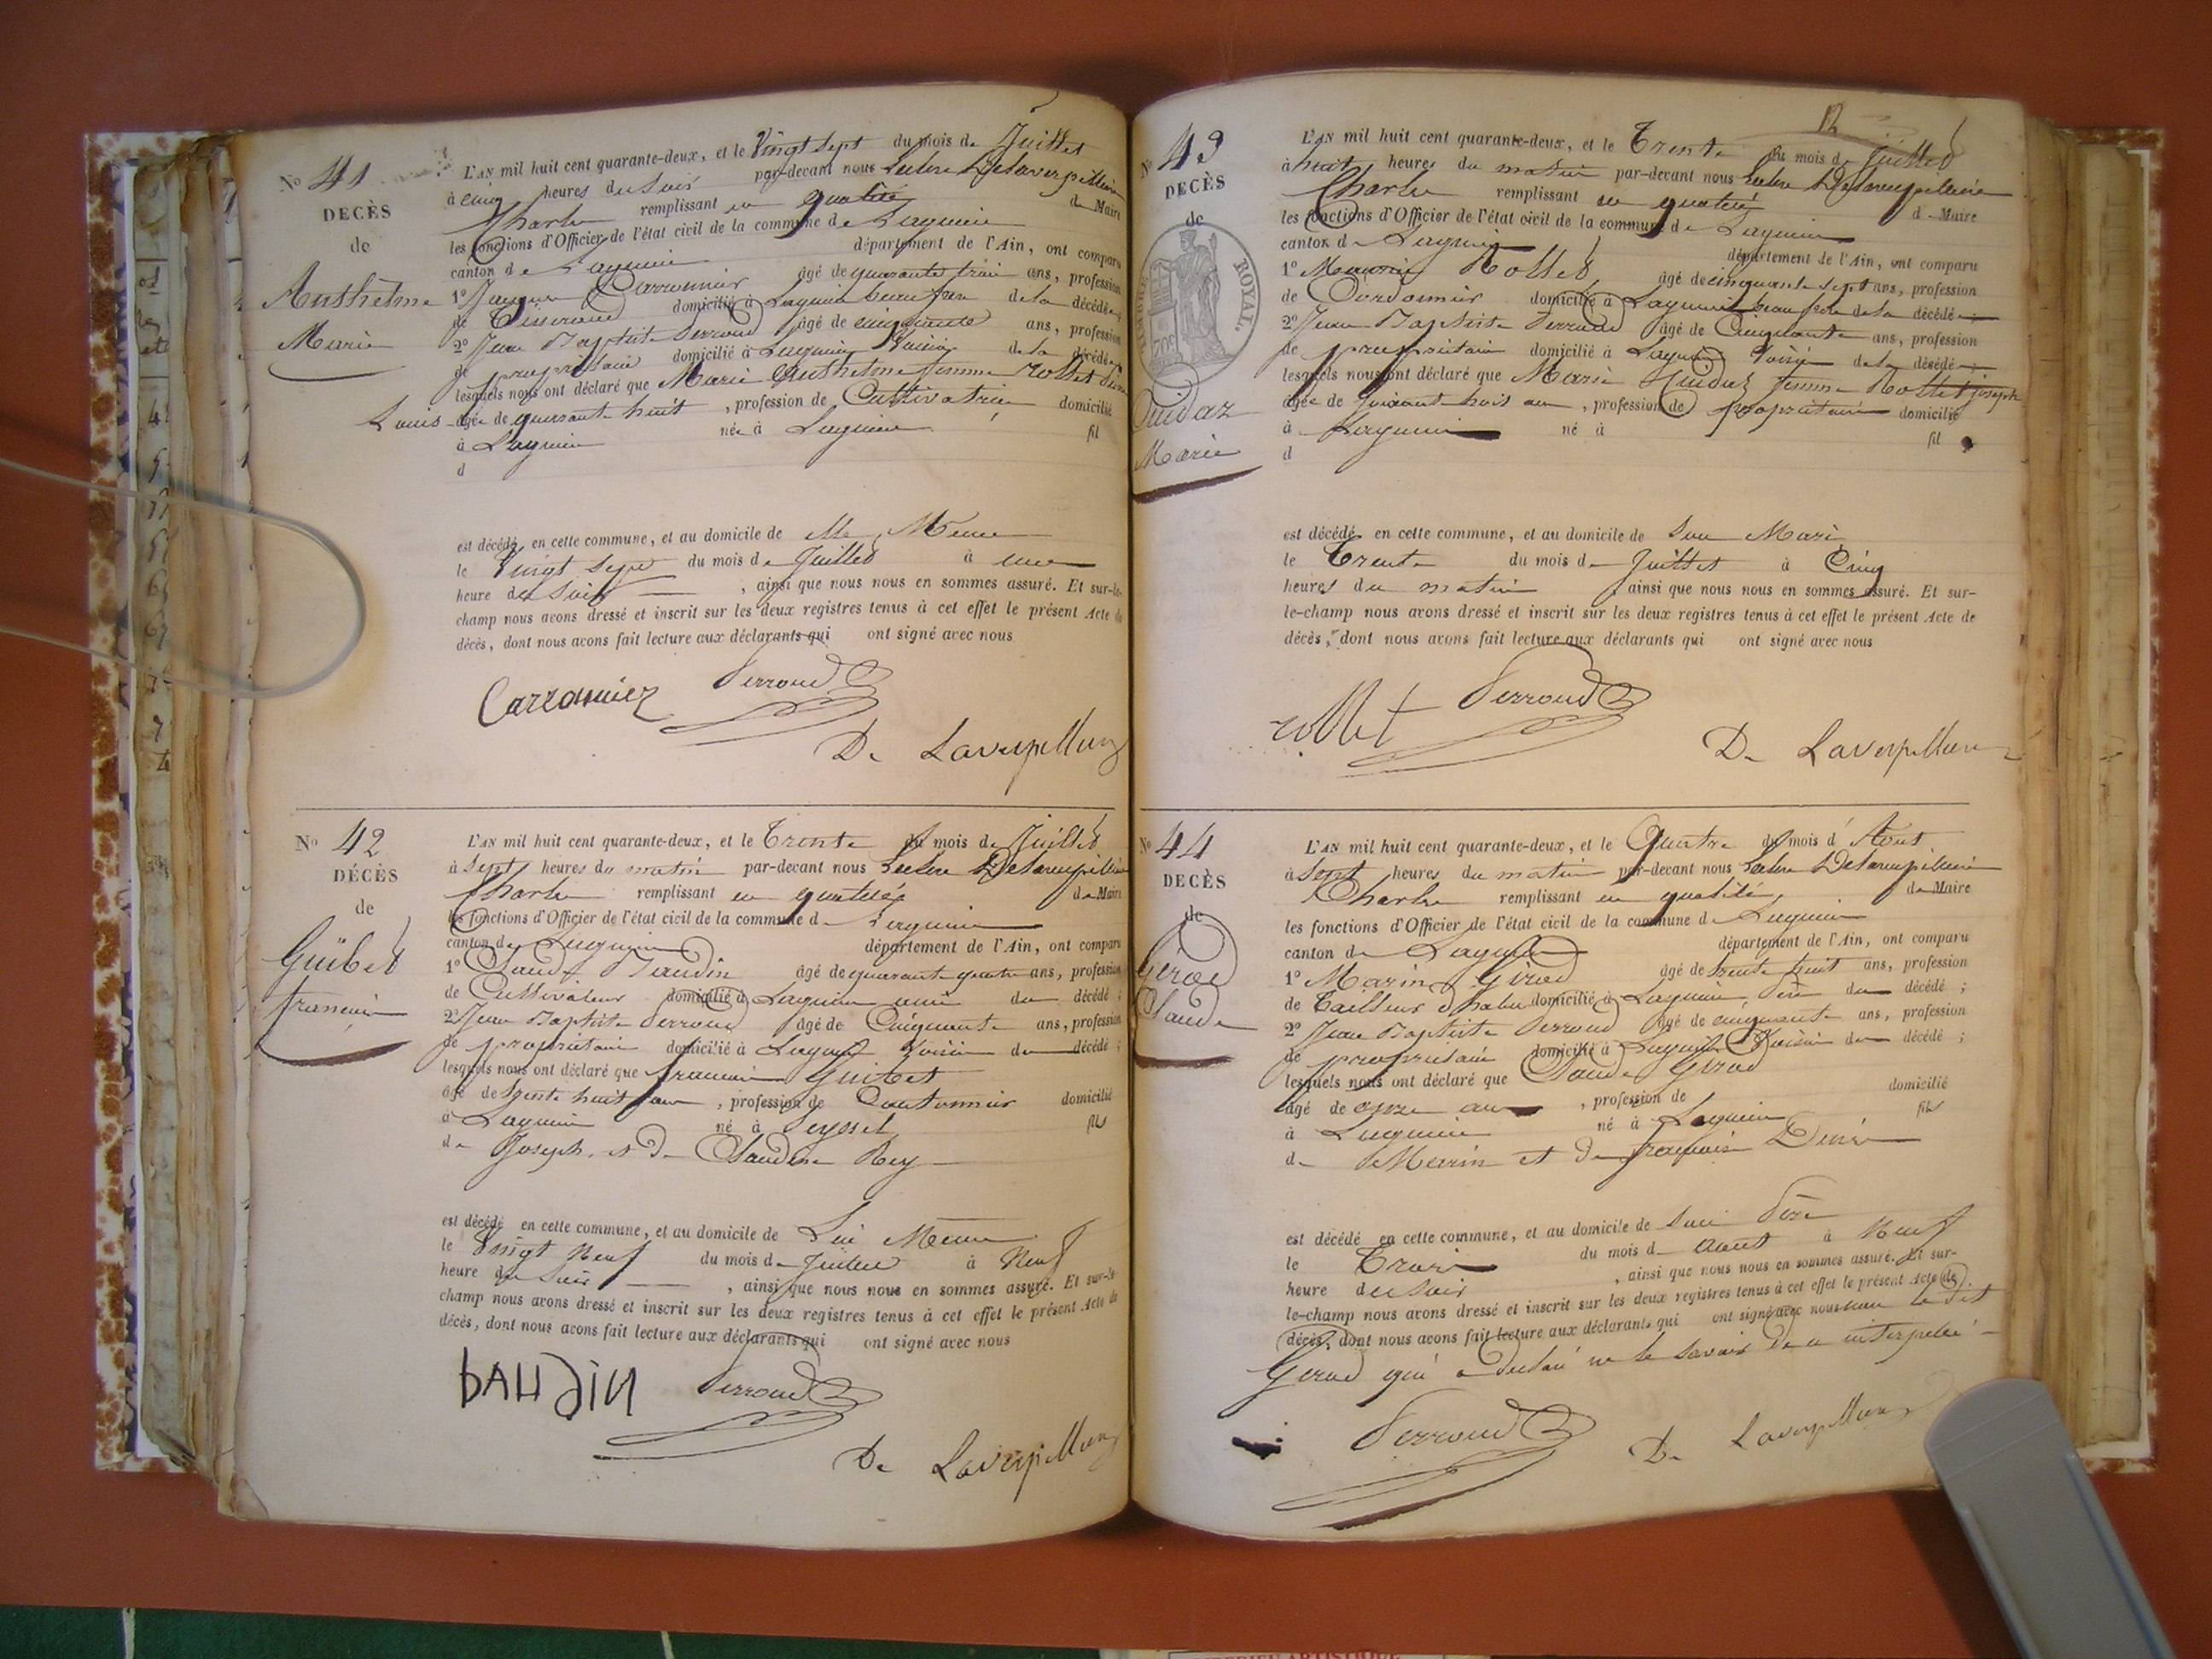 N° 41
DECÈS
de
Anthelme
Marie
L'AN mil huit cent quarante-deux, et le Vingt sept du mois de Juillet
à cinq heures du soir par-devant nous Delaverpillière
Charles remplissant en qualité de Maire
les fonctions d'Officier de l'état civil de la commune de Lagnieu
canton de Lagnieu département de l'Ain, ont comparu
1° Jacques Carronnier âgé de quarante trois ans, profession
de Tisserand domicilié à Lagnieu beau frère de la décédée
2° Jean Baptiste Perroud âgé de cinquante ans, profession
de propriétaire domicilié à Lagnieu Voisin de la décédée
lesquels nous ont déclaré que Marie Anthelme femme Rollet
Louis âgée de quarante huit, profession de Cultivatrice domicilié
à Lagnieu née à Lagnieu fil
d
est décédé en cette commune, et au domicile de Elle Meme
le Vingt Sept du mois de Juillet à une
heure du Soir, ainsi que nous nous en sommes assuré. Et sur-le-
champ nous avons dressé et inscrit sur les deux registres tenus à cet effet le présent Acte de
décès, dont nous avons fait lecture aux déclarants qui ont signé avec nous
Carronnier Perroud
De Laverpilliere
N° 42
DÉCÈS
de
Guibet
francois
L'AN mil huit cent quarante-deux, et le Trente du mois de Juillet
à Sept heures du matin par-devant nous Delaverpilliere
Charles remplissant en qualité de Maire
les fonctions d'Officier de l'état civil de la commune de Lagnieu
canton de Lagnieu département de l'Ain, ont comparu
1° Claude Baudin âgé de quarante quatre ans, profession
de Cultivateur domicilié à Lagnieu ami du décédé ;
2° Jean Baptiste Perroud âgé de Cinquante ans, profession
de propriétaire domicilié à Lagnieu Voisin du décédé ;
lesquels nous ont déclaré que francois Guibet
âgé de trente huit ans, profession de Cantonnier domicilié
à Lagnieu né à Seyssel fils
de Joseph et de Claudine Rey
est décédé en cette commune, et au domicile de Lui Meme
le Vingt Neuf du mois de Juillet à Neuf
heure du Soir, ainsi que nous nous en sommes assuré. Et sur-le-
champ nous avons dressé et inscrit sur les deux registres tenus à cet effet le présent Acte de
décès, dont nous avons fait lecture aux déclarants qui ont signé avec nous
bAUDIN Perroud
De Laverpilliere
12
N° 43
DECÈS
de
TIMBRE ROYAL
70c
Guidaz
Marie
L'AN mil huit cent quarante-deux, et le Trente du mois de Juillet
à huit heures du matin par-devant nous Delaverpilliere
Charles remplissant en qualité de Maire
les fonctions d'Officier de l'état civil de la commune de Lagnieu
canton de Lagnieu département de l'Ain, ont comparu
1° Rollet âgé de cinquante sept ans, profession
de Cordonnier domicilié à Lagnieu beau frère de la décédée
2° Jean Baptiste Perroud âgé de Cinquante ans, profession
de propriétaire domicilié à Lagnieu Voisin de la décédée
lesquels nous ont déclaré que Marie Guidaz femme Rollet Joseph
âgée de soixante trois ans, profession de propriétaire domicilié
à Lagnieu né à fil
d
est décédé en cette commune, et au domicile de Son Mari
le Trente du mois de Juillet à Cinq
heures du matin, ainsi que nous nous en sommes assuré. Et sur-
le-champ nous avons dressé et inscrit sur les deux registres tenus à cet effet le présent Acte de
décès, dont nous avons fait lecture aux déclarants qui ont signé avec nous
rollet Perroud
De Laverpilliere
N° 44
DECÈS
de
Girod
Claude
L'AN mil huit cent quarante-deux, et le Quatre du mois d'Aout
à Sept heures du matin par-devant nous Delaverpilliere
Charles remplissant en qualité de Maire
les fonctions d'Officier de l'état civil de la commune de Lagnieu
canton de Lagnieu département de l'Ain, ont comparu
1° Marin Girod âgé de trente huit ans, profession
de Tailleur d'habit domicilié à Lagnieu, Père du décédé ;
2° Jean Baptiste Perroud âgé de cinquante ans, profession
de propriétaire domicilié à Lagnieu Voisin du décédé ;
lesquels nous ont déclaré que Claude Girod
âgé de onze ans, profession de domicilié
à Lagnieu né à Lagnieu fils
de Marin et de françoise Denis
est décédé en cette commune, et au domicile de Son Père
le Trois du mois d'Aout à Neuf
heure du Soir, ainsi que nous nous en sommes assuré. Et sur-
le-champ nous avons dressé et inscrit sur les deux registres tenus à cet effet le présent Acte de
décès, dont nous avons fait lecture aux déclarants qui ont signé avec nous non le dit
Girod qui a déclaré ne le savoir de ce interpellé
Perroud
De Laverpilliere